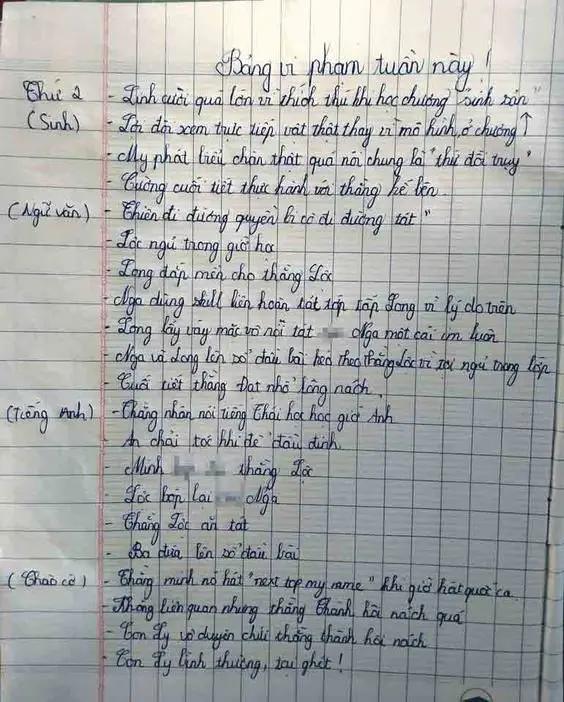 Bảng vi phạm tuần này !
Thứ 2 - Linh cười quá lớn vì thích thú khi học chương "sinh sản"
(Sinh) - Lợi đòi xem trực tiếp vật thật thay vì mô hình, ở chương ↑
- My phát biểu chân thật quá nói chung là "thứ đồi trụy"
- Cường cuối tiết thực hành với thằng kế bên.
(Ngữ văn) - Thiên đi đường quyền bị cô đi đường tát"
- Lộc ngủ trong giờ học
- Long đắp mền cho thằng Lộc
- Nga dùng skill liên hoàn tát tới tấp Long vì lý do trên
- Long lấy váy mặc vô nồi tát Nga một cái im luôn
- Nga và Long lên sổ đầu bài kéo theo thằng Lộc vì tội ngủ trong lớp
- Cuối tiết thằng Đạt nhổ lông nách.
(Tiếng Anh) - Thằng nhân nói tiếng Thái học học giờ Anh
- An chải tóc khi để đầu đinh
- Minh thằng Lộc
- Lộc bóp lại Nga
- Thằng Lộc ăn tát
- Ba đứa lên sổ đầu bài
(Chào cờ) - Thằng minh nó hát "next top my name" khi giờ hát quốc ca
- Không liên quan nhưng thằng Thành hôi nách quá
- Con Ly vô duyên chửi thằng thành hôi nách
- Con Ly bình thường, tại ghét !